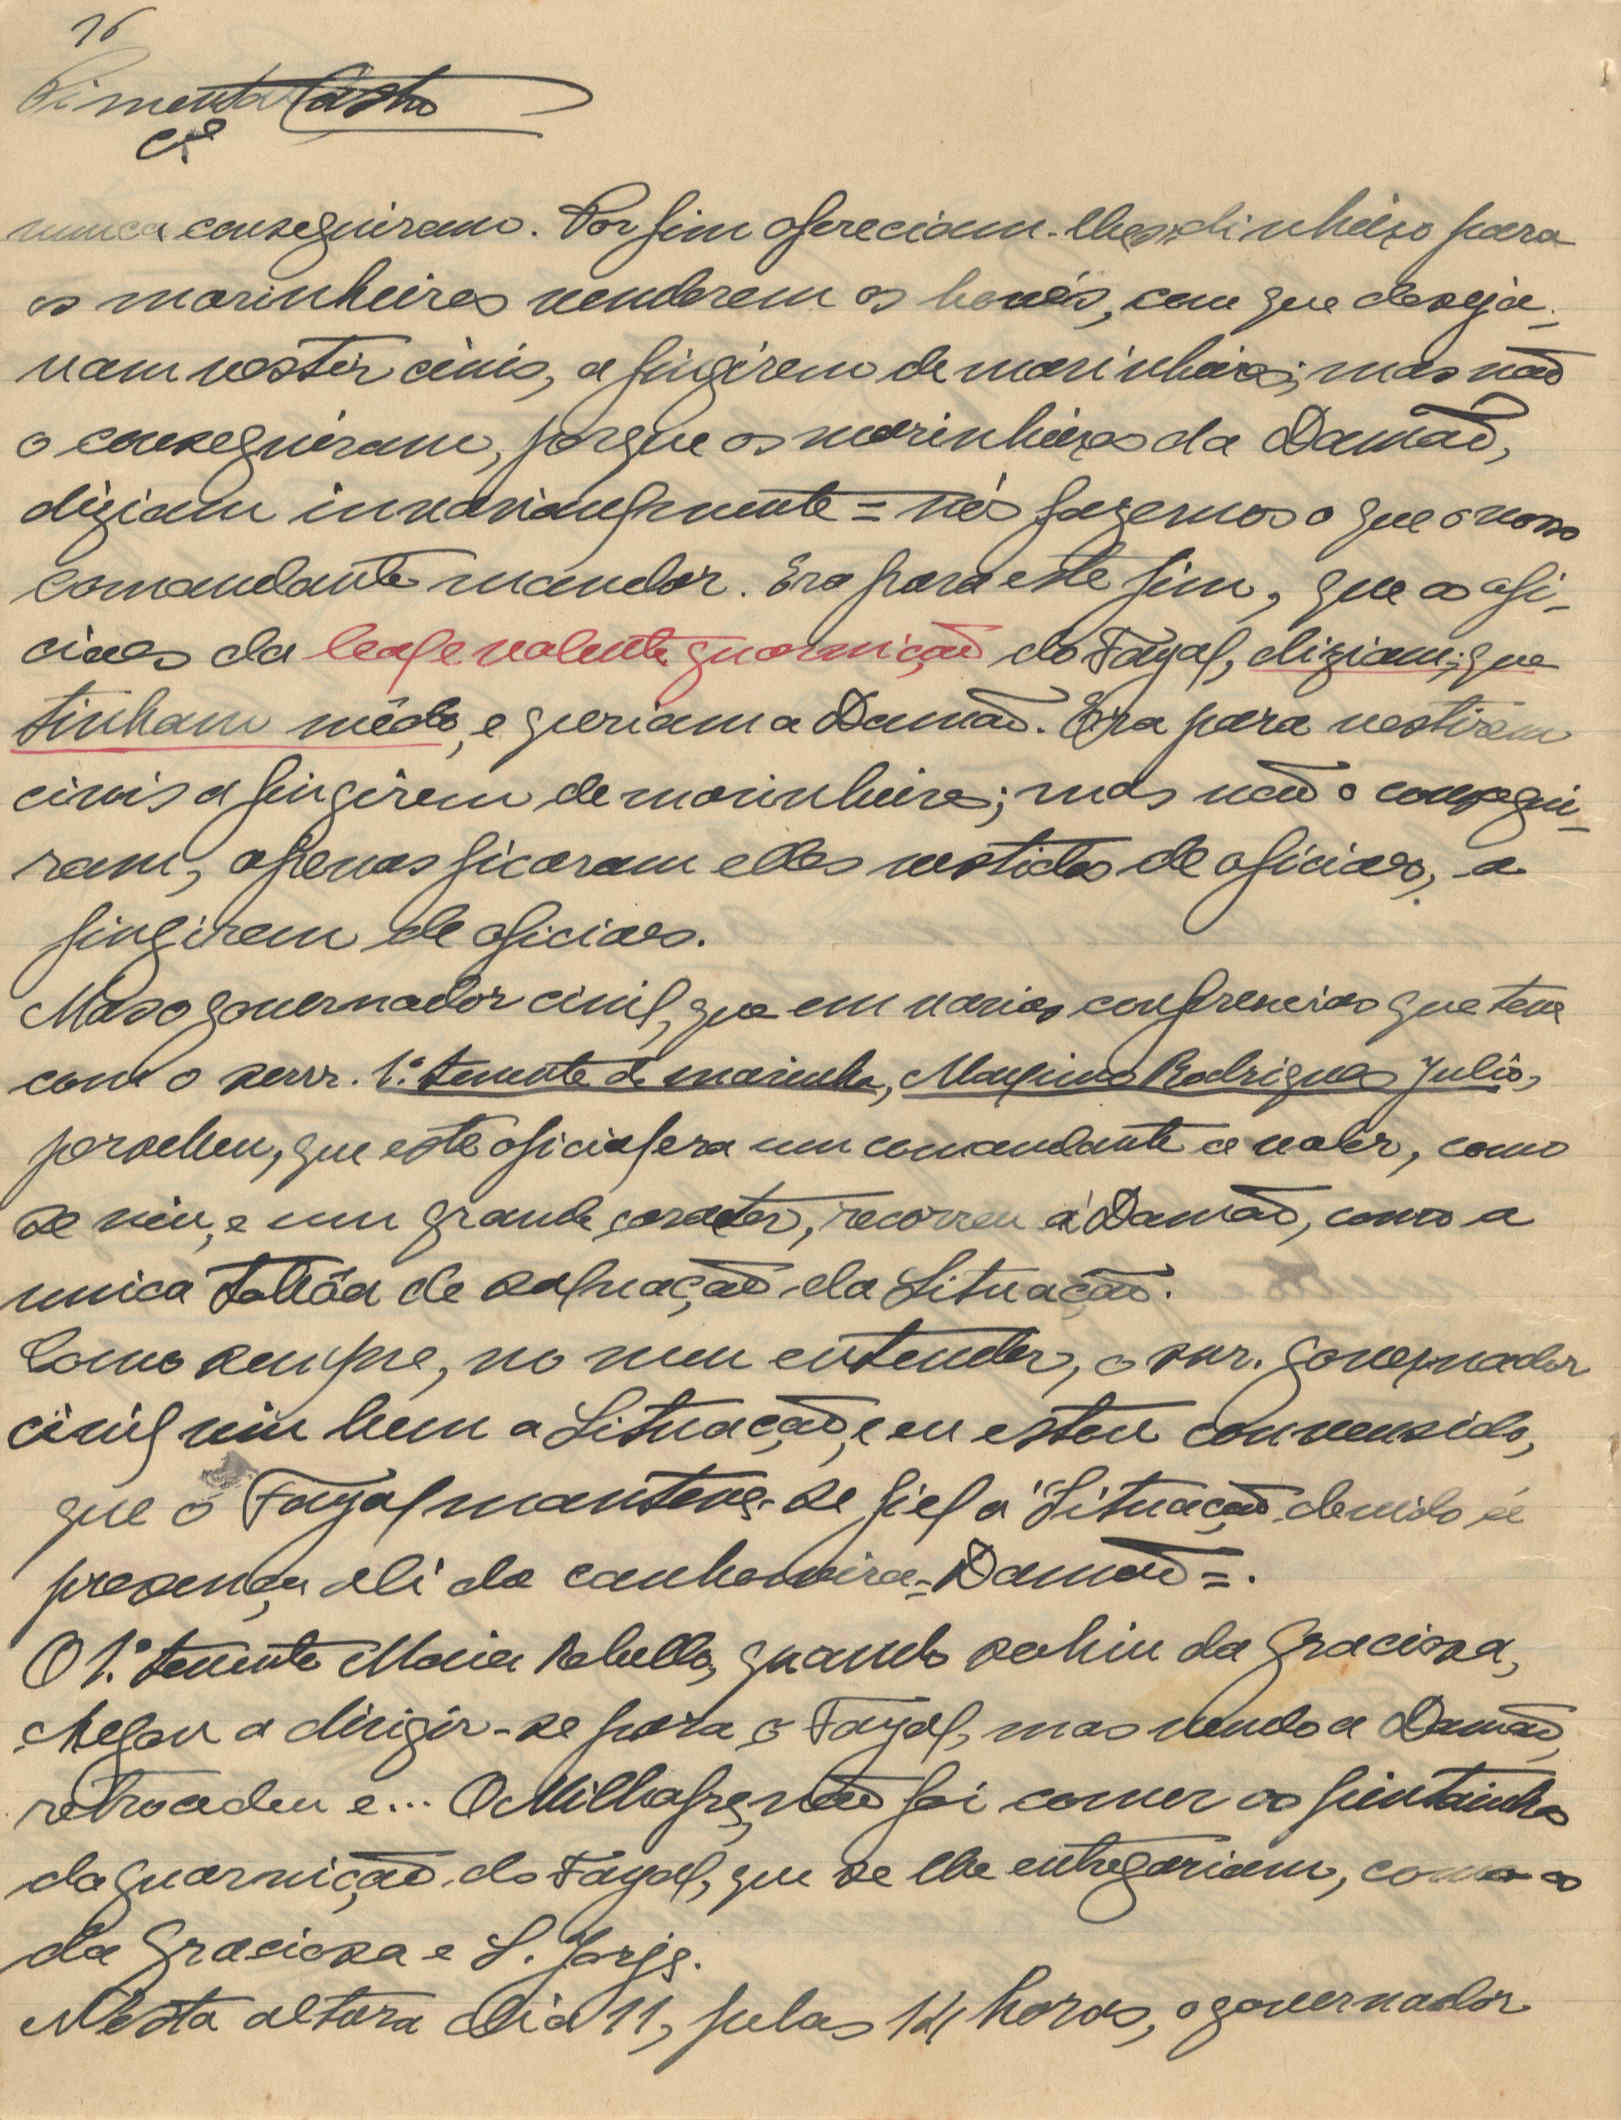 16
Pimenta Castro
nunca conseguiram. Por fim ofereciam-lhes dinheiro para
os marinheiros venderem os bonés, com que deseja-
vam vestir civis, a fingirem de marinheiros; mas não
o conseguiram, porque os marinheiros da Damão,
diziam invariavelmente = nós fazemos o que o nosso
comandante mandar. Era para este fim, que os ofi-
ciaes da leal e valente guarnição do Fayal, diziam, que
tinham mêdo, e queriam a Damão. Era para vestirem
civis a fingirem de marinheiros; mas não o consegui-
ram, apenas ficaram elles vestidos de oficiaes, a
fingirem de oficiaes.
Mas o governador civil, que em varias conferencias que teve
com o snr. 1.º tenente de marinha, Maximo Rodrigues Julio,
percebeu, que este oficial era um comandante de valor, como
se viu, e um grande caracter, recorreu á Damão, como a
unica taboa de salvação da Situação.
Como sempre, no meu entender, o snr. governador
civil viu bem a Situação, e eu estou convensido,
que o Fayal manteve-se fiel á Situação devido á
presença ali da canhoneira = Damão =.
O 1.º tenente Maia Rebello, quando sahiu da Graciosa,
chegou a dirigir-se para o Fayal, mas vendo a Damão,
retrocedeu e... O Milhafre, não foi comer os pintainhos
da guarnição do Fayal, que se lhe entregariam, como os
da Graciosa e S. Jorge.
N'esta altura dia 11, pelas 14 horas, o governador